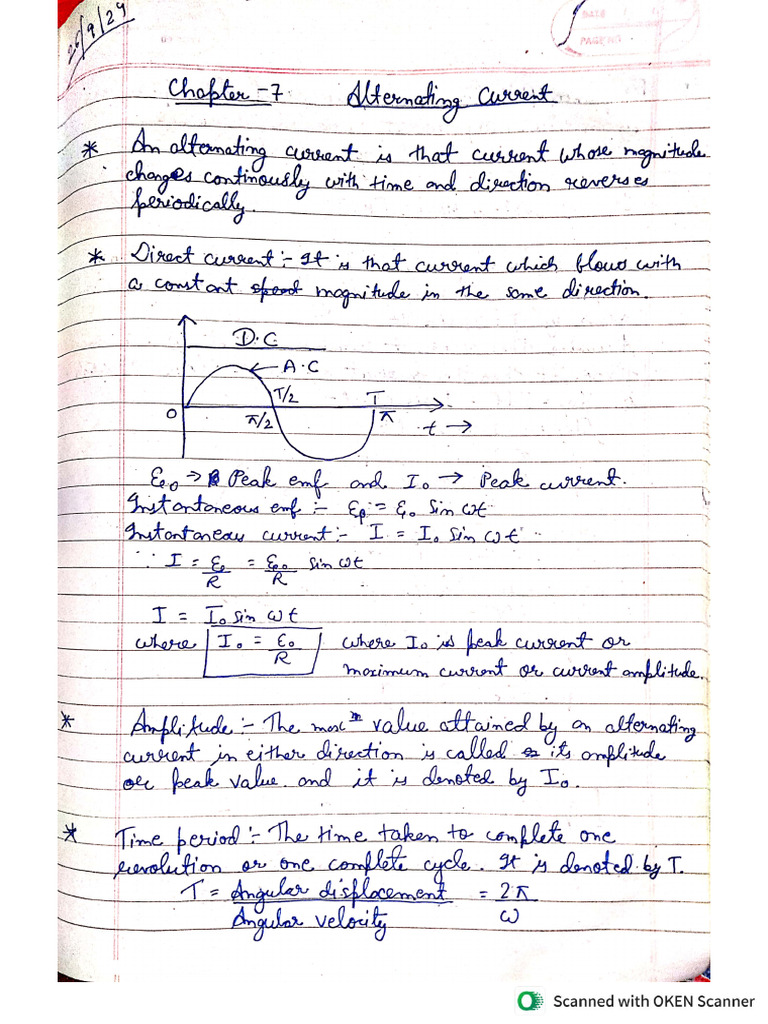 26/9/24
DATE
PAGE NO
Chapter-7 Alternating Current
* An alternating current is that current whose magnitude
changes continously with time and direction reverses
periodically.
* Direct current:- It is that current which flows with
a constant speed magnitude in the same direction.
D.C
A.C
T/2 T
0 π/2 π
t →
Eo → Peak emf and Io → Peak current.
Instantaneous emf:- Ep = Eo Sin ωt
Instantaneous current:- I = Io Sin ωt
∵ I = Eo/R = Eo/R sin ωt
I = Io sin ωt
where Io = Eo/R where Io is peak current or
maximum current or current amplitude.
* Amplitude:- The maxm value attained by an alternating
current in either direction is called its amplitude
or peak value. and it is denoted by Io.
* Time period:- The time taken to complete one
revolution or one complete cycle. It is denoted by T.
T = Angular displacement = 2π
Angular velocity ω
Scanned with OKEN Scanner